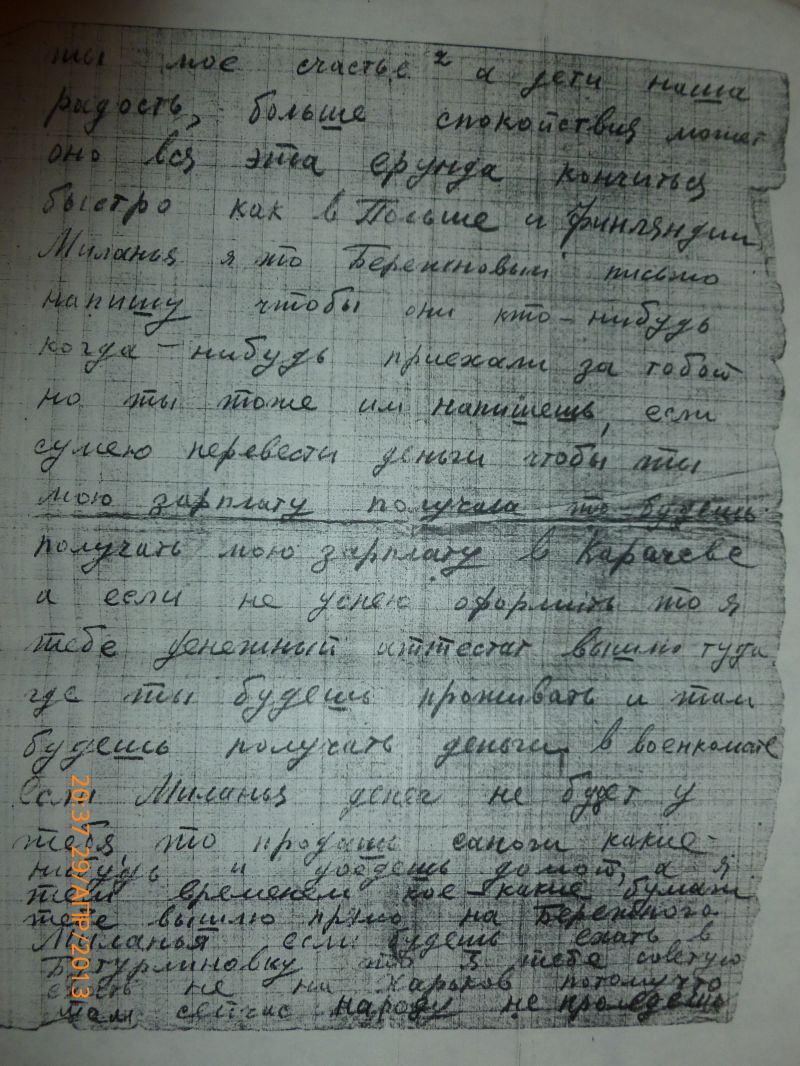 ты мое счастье х а дети наша
радость, больше спокойствия может
оно вся эта ерунда кончиться
быстро как в Польше и Финляндии
Миланья я то Бережновым письмо
напишу чтобы они кто-нибудь
когда-нибудь приехали за тобой
но ты тоже им напишешь, если
сумею перевести деньги чтобы ты
мою зарплату получала то будешь
получать мою зарплату в Карачеве
а если не успею оформить то я
тебе денежный аттестат вышлю туда
где ты будешь проживать и там
будешь получать деньги, в военкомате
Если Миланья денег не будет у
тебя то продаш сапоги какие-
нибудь и уедешь домой, а я
тем временем кое-какие бумаги
тебе вышлю прямо на Бережного
Миланья если будешь ехать в
Бутурлиновку то я тебе советую
ехать не на Харьков потому что
там сейчас народу не пройдешь
20:37 29/АПР/2013